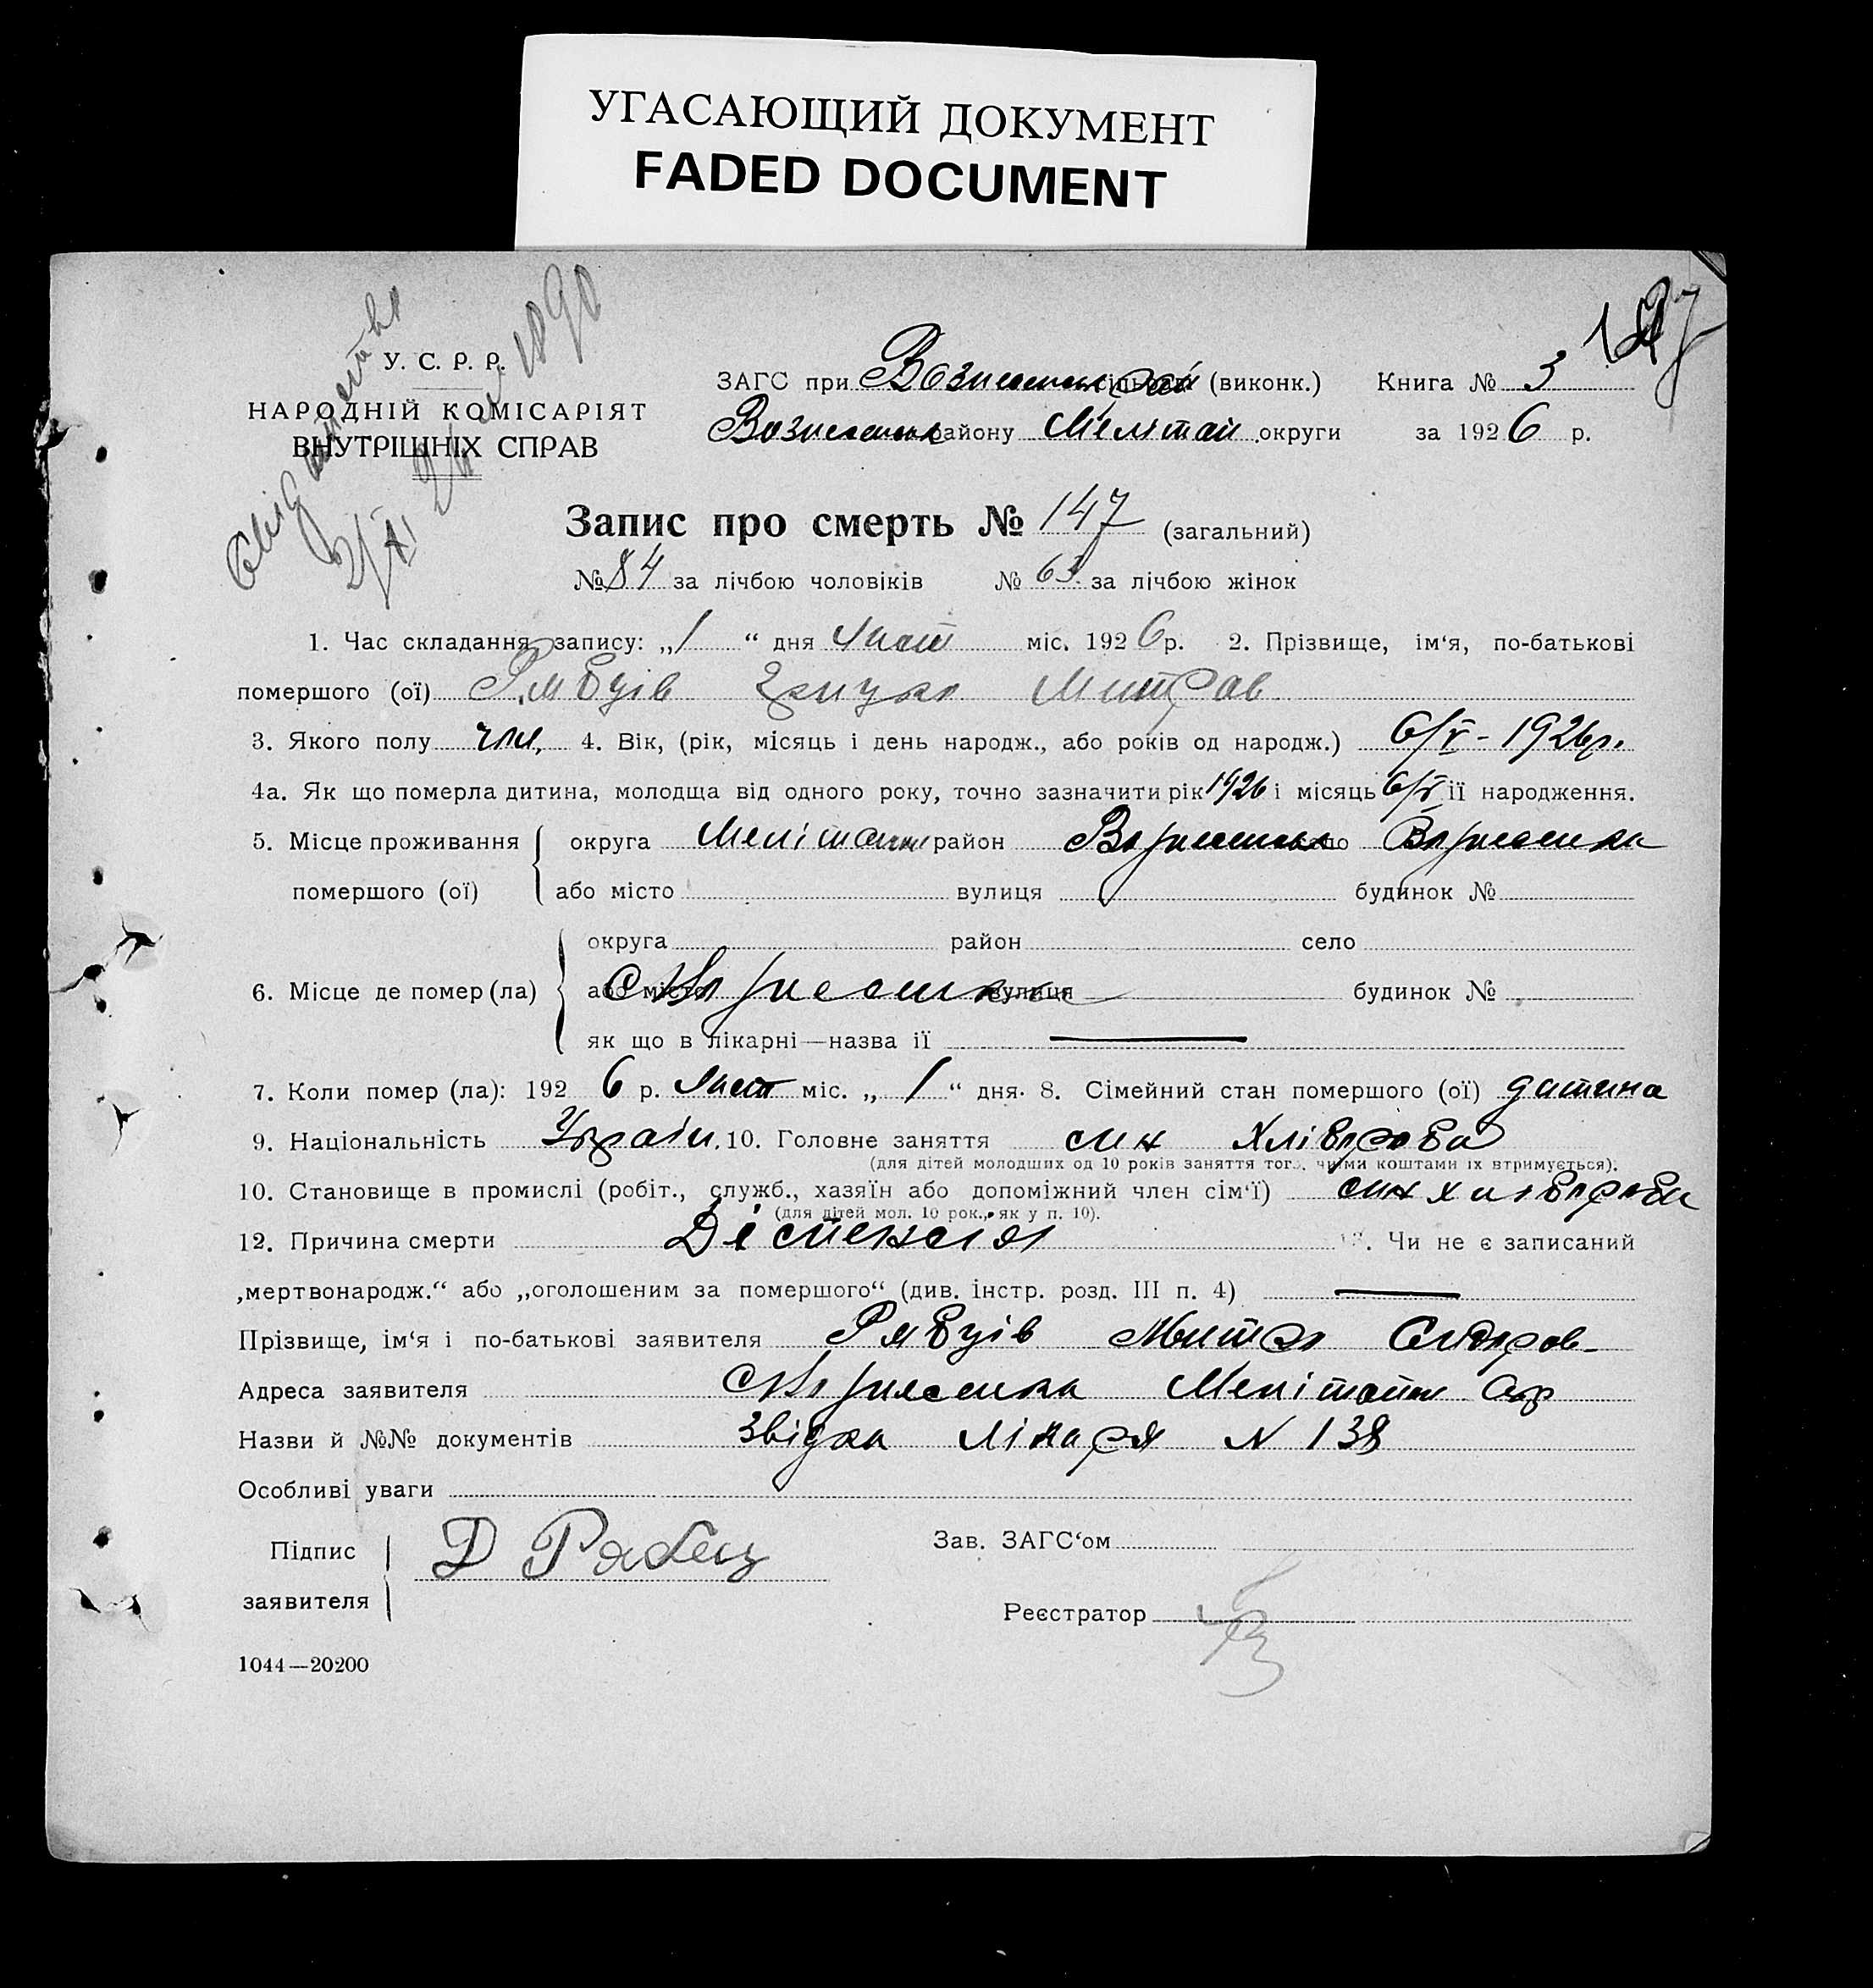 УГАСАЮЩИЙ ДОКУМЕНТ
FADED DOCUMENT
147
У. С. Р. Р.
НАРОДНІЙ КОМІСАРІЯТ
ВНУТРІШНІХ СПРАВ
ЗАГС при (виконк.) Книга № 3
району Меліт округи за 1926 р.
Запис про смерть № 147 (загальний)
№ 84 за лічбою чоловіків № 63 за лічбою жінок
1. Час складання запису: „1“ дня Лист міс. 1926 р. 2. Прізвище, ім‘я, по-батькові
помершого (ої) Рябців Грицко Митров
3. Якого полу чол. 4. Вік, (рік, місяць і день народж., або років од народж.) 6/V - 1926р.
4а. Як що померла дитина, молодща від одного року, точно зазначити рік 1926 і місяць 6/V її народження.
5. Місце проживання округа Меліт район Вознесенськ село Вознесенка
помершого (ої) або місто вулиця будинок №
округа район село
6. Місце де помер (ла) або місто с Вознесенка вулиця будинок №
як що в лікарні—назва ії —
7. Коли помер (ла): 1926 р. Лист міс. „1“ дня. 8. Сімейний стан помершого (ої) дитина
9. Національність Україн. 10. Головне заняття син Хлібороба
(для дітей молодших од 10 років заняття того, чиїми коштами їх втримується).
10. Становище в промислі (робіт., служб., хазяїн або допоміжний член сім‘ї) син хлібороба
(для дітей мол. 10 рок., як у п. 10).
12. Причина смерти Діспенсія 13. Чи не є записаний
„мертвонародж.“ або „оголошеним за помершого“ (див. інстр. розд. III п. 4) —
Прізвище, ім‘я і по-батькові заявителя Рябців Митро Сидоров-
Адреса заявителя с Вознесенка Меліт Окр
Назви й №№ документів Звідка Лікаря N 138
Особливі уваги
Підпис Д Рябец Зав. ЗАГС‘ом
заявителя
Реєстратор
1044—20200